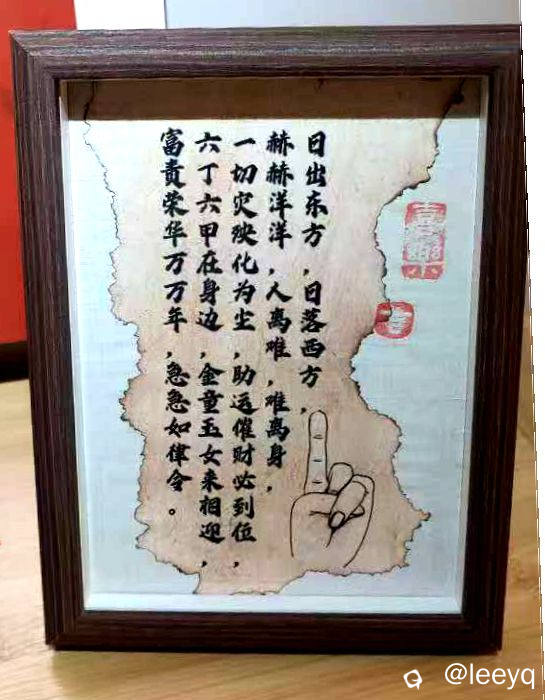 日出东方，日落西方，
赫赫洋洋，人离难，难离身，
一切灾殃化为尘，助运催财必到位，
六丁六甲在身边，金童玉女来相迎，
富贵荣华万万年，急急如律令。
@leeyq